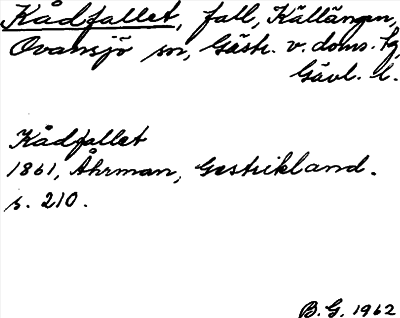 Kådfallet, fall, Källängen,
Ovansjö sn, Gästr. v. doms. tg,
Gävl. l.
Kådfallet
1861, Åhrman, Gestrikland.
s. 210.
B.G. 1962